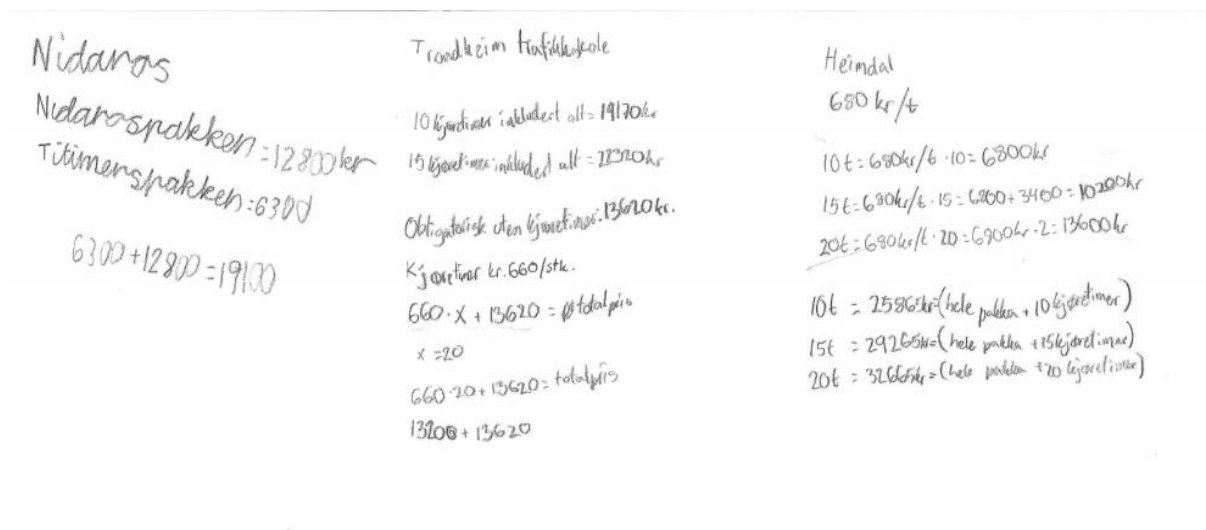 Nidaros
Nidarospakken = 12800kr
Titimerspakken: 6300
6300+12800=19100
Trondheim trafikkskole
10 kjøretimer inkludert alt = 19170kr
15 kjøretimer inkludert alt = 22320kr
Obligatorisk uten kjøretimer: 13620kr.
Kjøretimer kr. 660/stk.
660·x + 13620 = totalpris
x = 20
660·20 + 13620 = totalpris
13200 + 13620
Heimdal
680 kr/t
10t = 680kr/t · 10 = 6800kr
15t = 680kr/t · 15 = 6800 + 3400 = 10200kr
20t = 680kr/t · 20 = 6800kr · 2 = 13600kr
10t = 25865kr=(hele pakken + 10 kjøretimer)
15t = 29265kr=(hele pakken + 15 kjøretimer)
20t = 32665kr=(hele pakken + 20 kjøretimer)